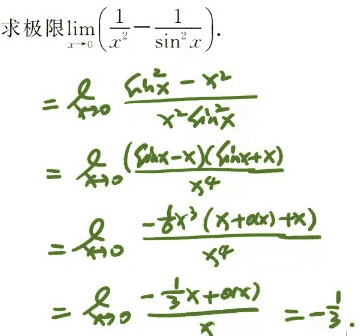 求极限 lim_{x→0} (1/x² − 1/sin²x).
= lim_{x→0} (sin²x − x²)/(x² sin²x)
= lim_{x→0} (sinx−x)(sinx+x)/x⁴
= lim_{x→0} −1/6 x³ (x+o(x)+x)/x⁴
= lim_{x→0} (−1/3 x + o(x))/x = −1/3.